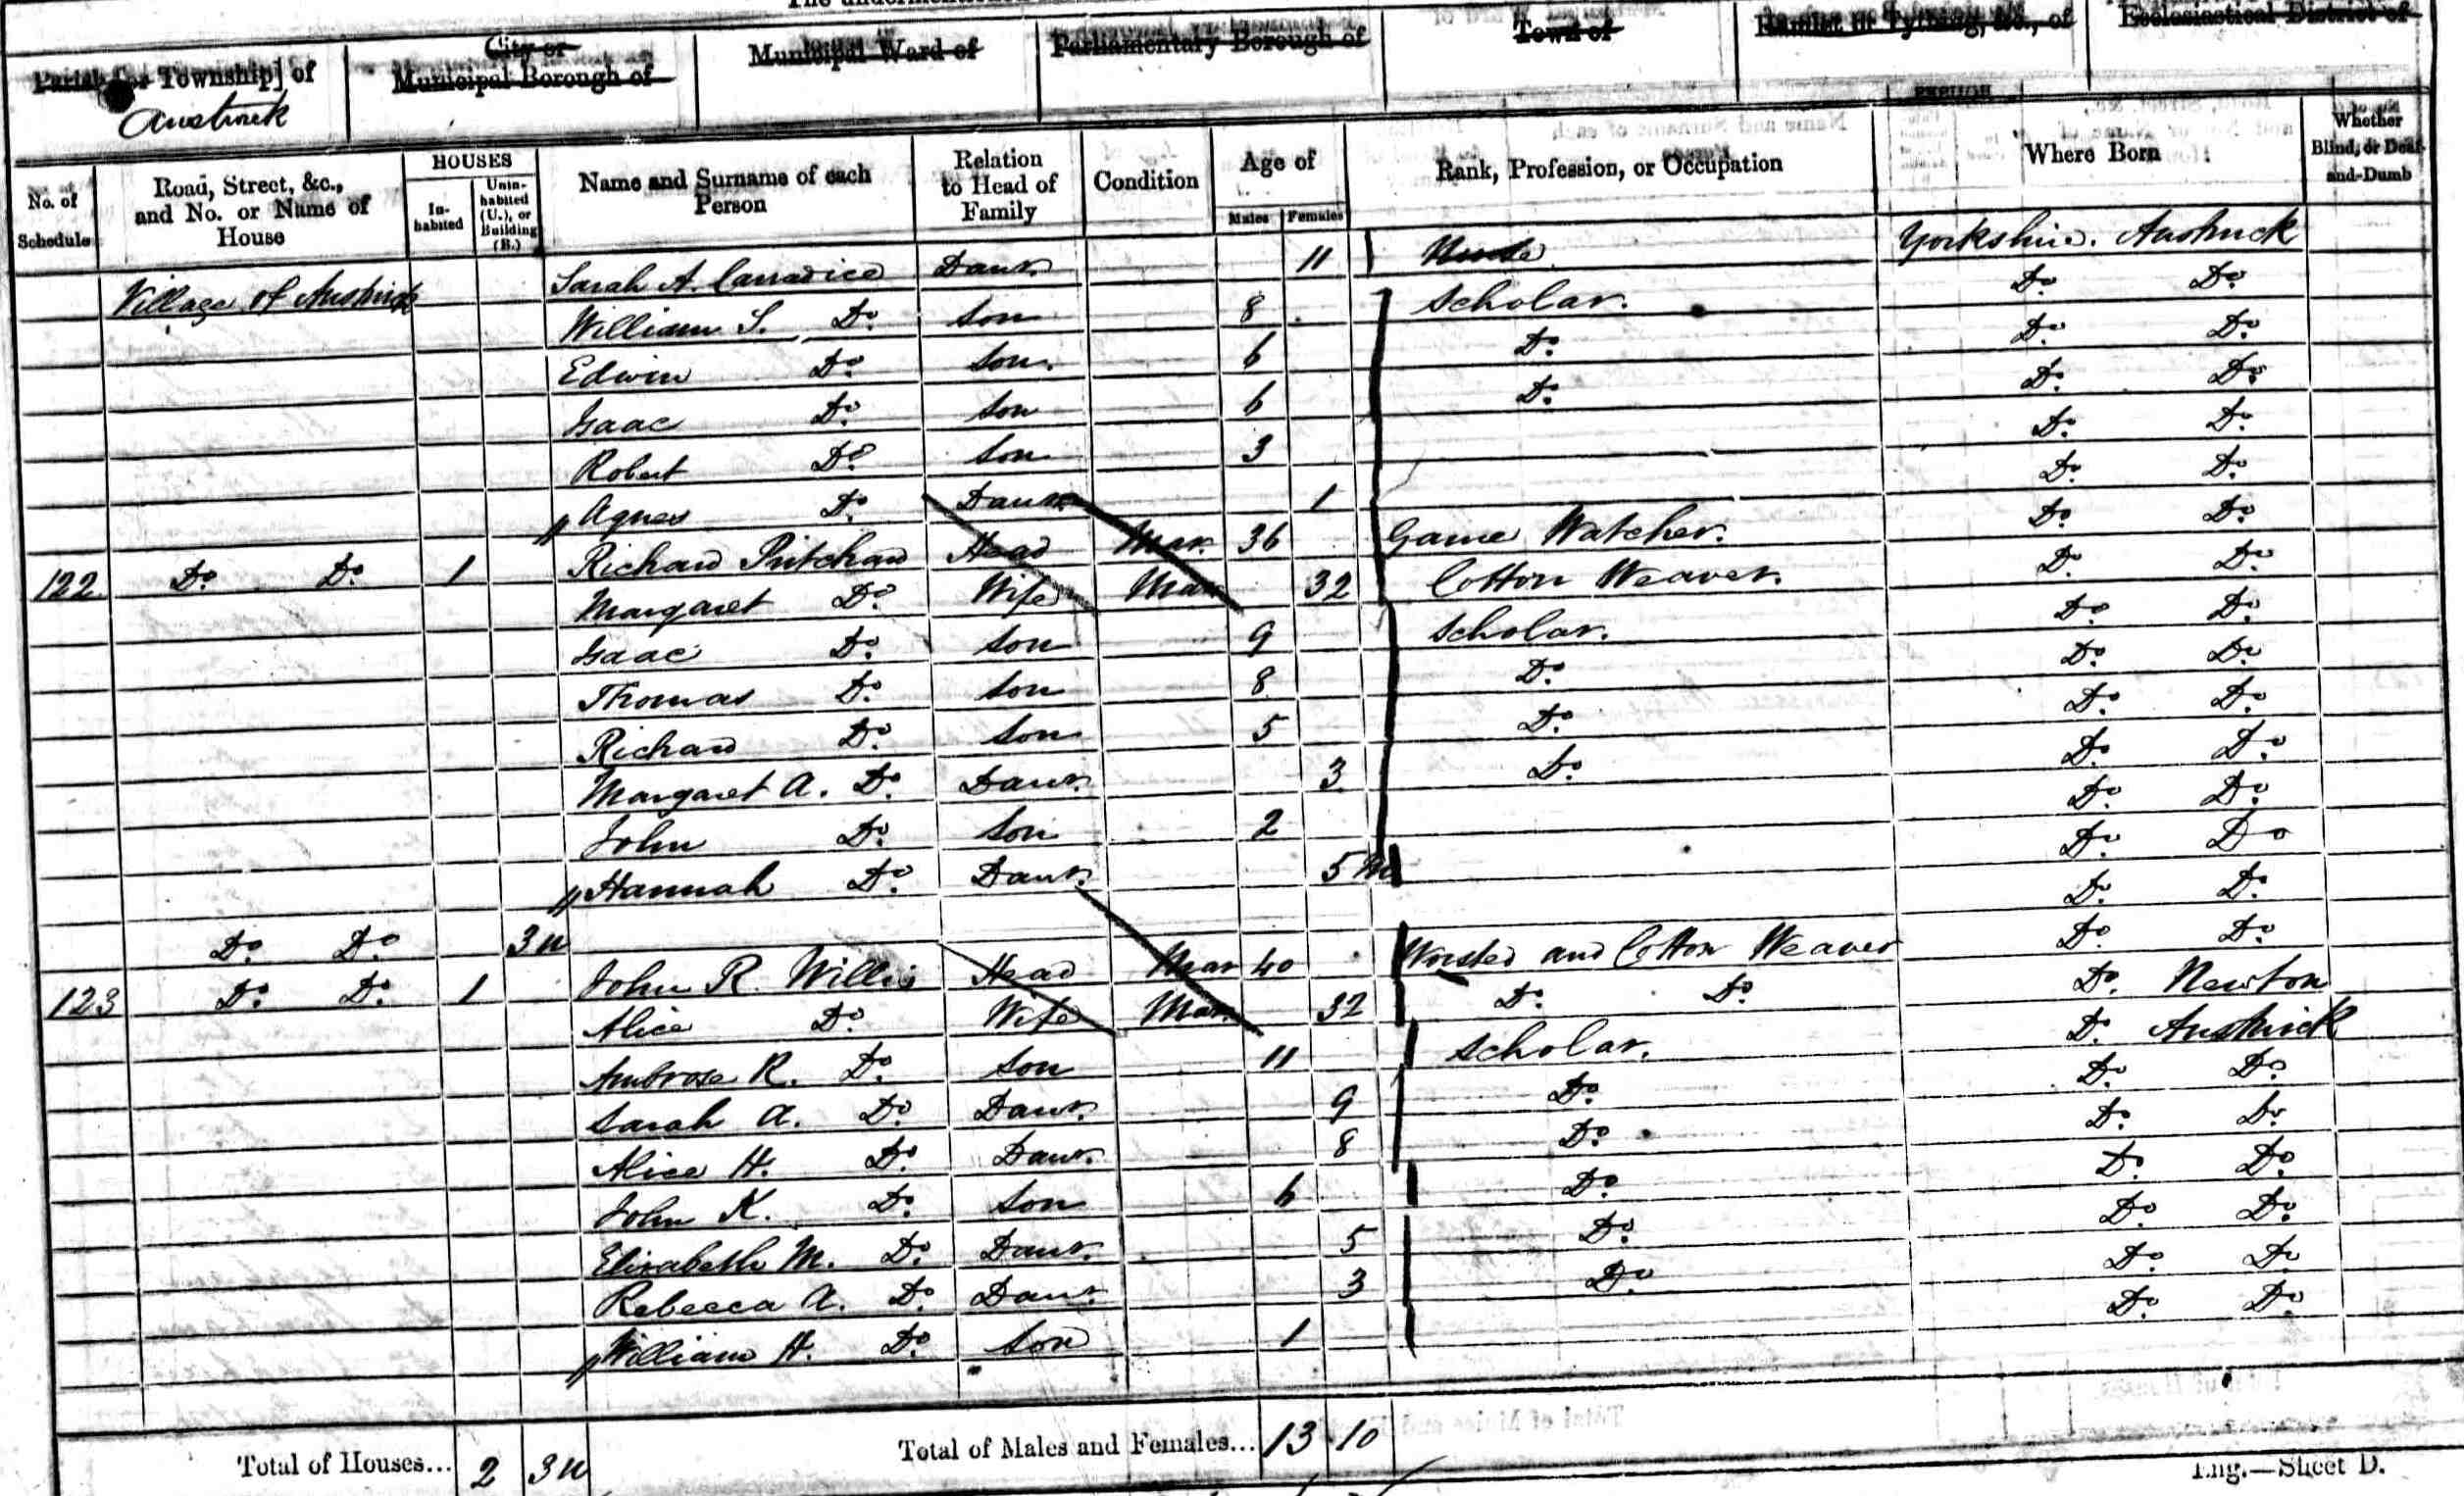 The undermentioned
Parish [or Township] of
City or
Municipal Borough of
Municipal Ward of
Parliamentary Borough of
Town of
Hamlet or Tything, &c., of
Ecclesiastical District of
Austwick
No. of Schedule
Road, Street, &c., and No. or Name of House
HOUSES
In-habited
Unin-habited (U.), or Building (B.)
Name and Surname of each Person
Relation to Head of Family
Condition
Age of
Males
Females
Rank, Profession, or Occupation
Where Born
Whether Blind, or Deaf-and-Dumb
Village of Austwick Sarah A. Carradice Daur. 11 Yorkshire. Austwick
William S. Do. Son 8 Scholar. Do. Do.
Edwin Do. Son. 6 Do. Do. Do.
Isaac Do. Son 6 Do. Do. Do.
Robert Do. Son 3 Do. Do.
Agnes Do. Daur. 1 Do. Do.
122 Do. Do. 1 Richard Pritchard Head Mar. 36 Game Watcher. Do. Do.
Margaret Do. Wife Mar 32 Cotton Weaver. Do. Do.
Isaac Do. Son 9 Scholar. Do. Do.
Thomas Do. Son 8 Do. Do. Do.
Richard Do. Son 5 Do. Do. Do.
Margaret A. Do. Daur. 3 Do. Do. Do.
John Do. Son 2 Do. Do.
Hannah Do. Daur. 5 Mo Do. Do.
Do. Do. 3 u Do. Do.
123 Do. Do. 1 John R. Willis Head Mar 40 Worsted and Cotton Weaver Do. Do.
Alice Do. Wife Mar. 32 Do. Do. Do. Newton
Ambrose R. Do. Son 11 Scholar. Do. Austwick
Sarah A. Do. Daur. 9 Do. Do. Do.
Alice H. Do. Daur. 8 Do. Do. Do.
John K. Do. Son 6 Do. Do. Do.
Elizabeth M. Do. Daur. 5 Do. Do. Do.
Rebecca A. Do. Daur. 3 Do. Do. Do.
William H. Do. Son 1 Do. Do.
Total of Houses... 2 3 u Total of Males and Females... 13 10
Eng.—Sheet D.